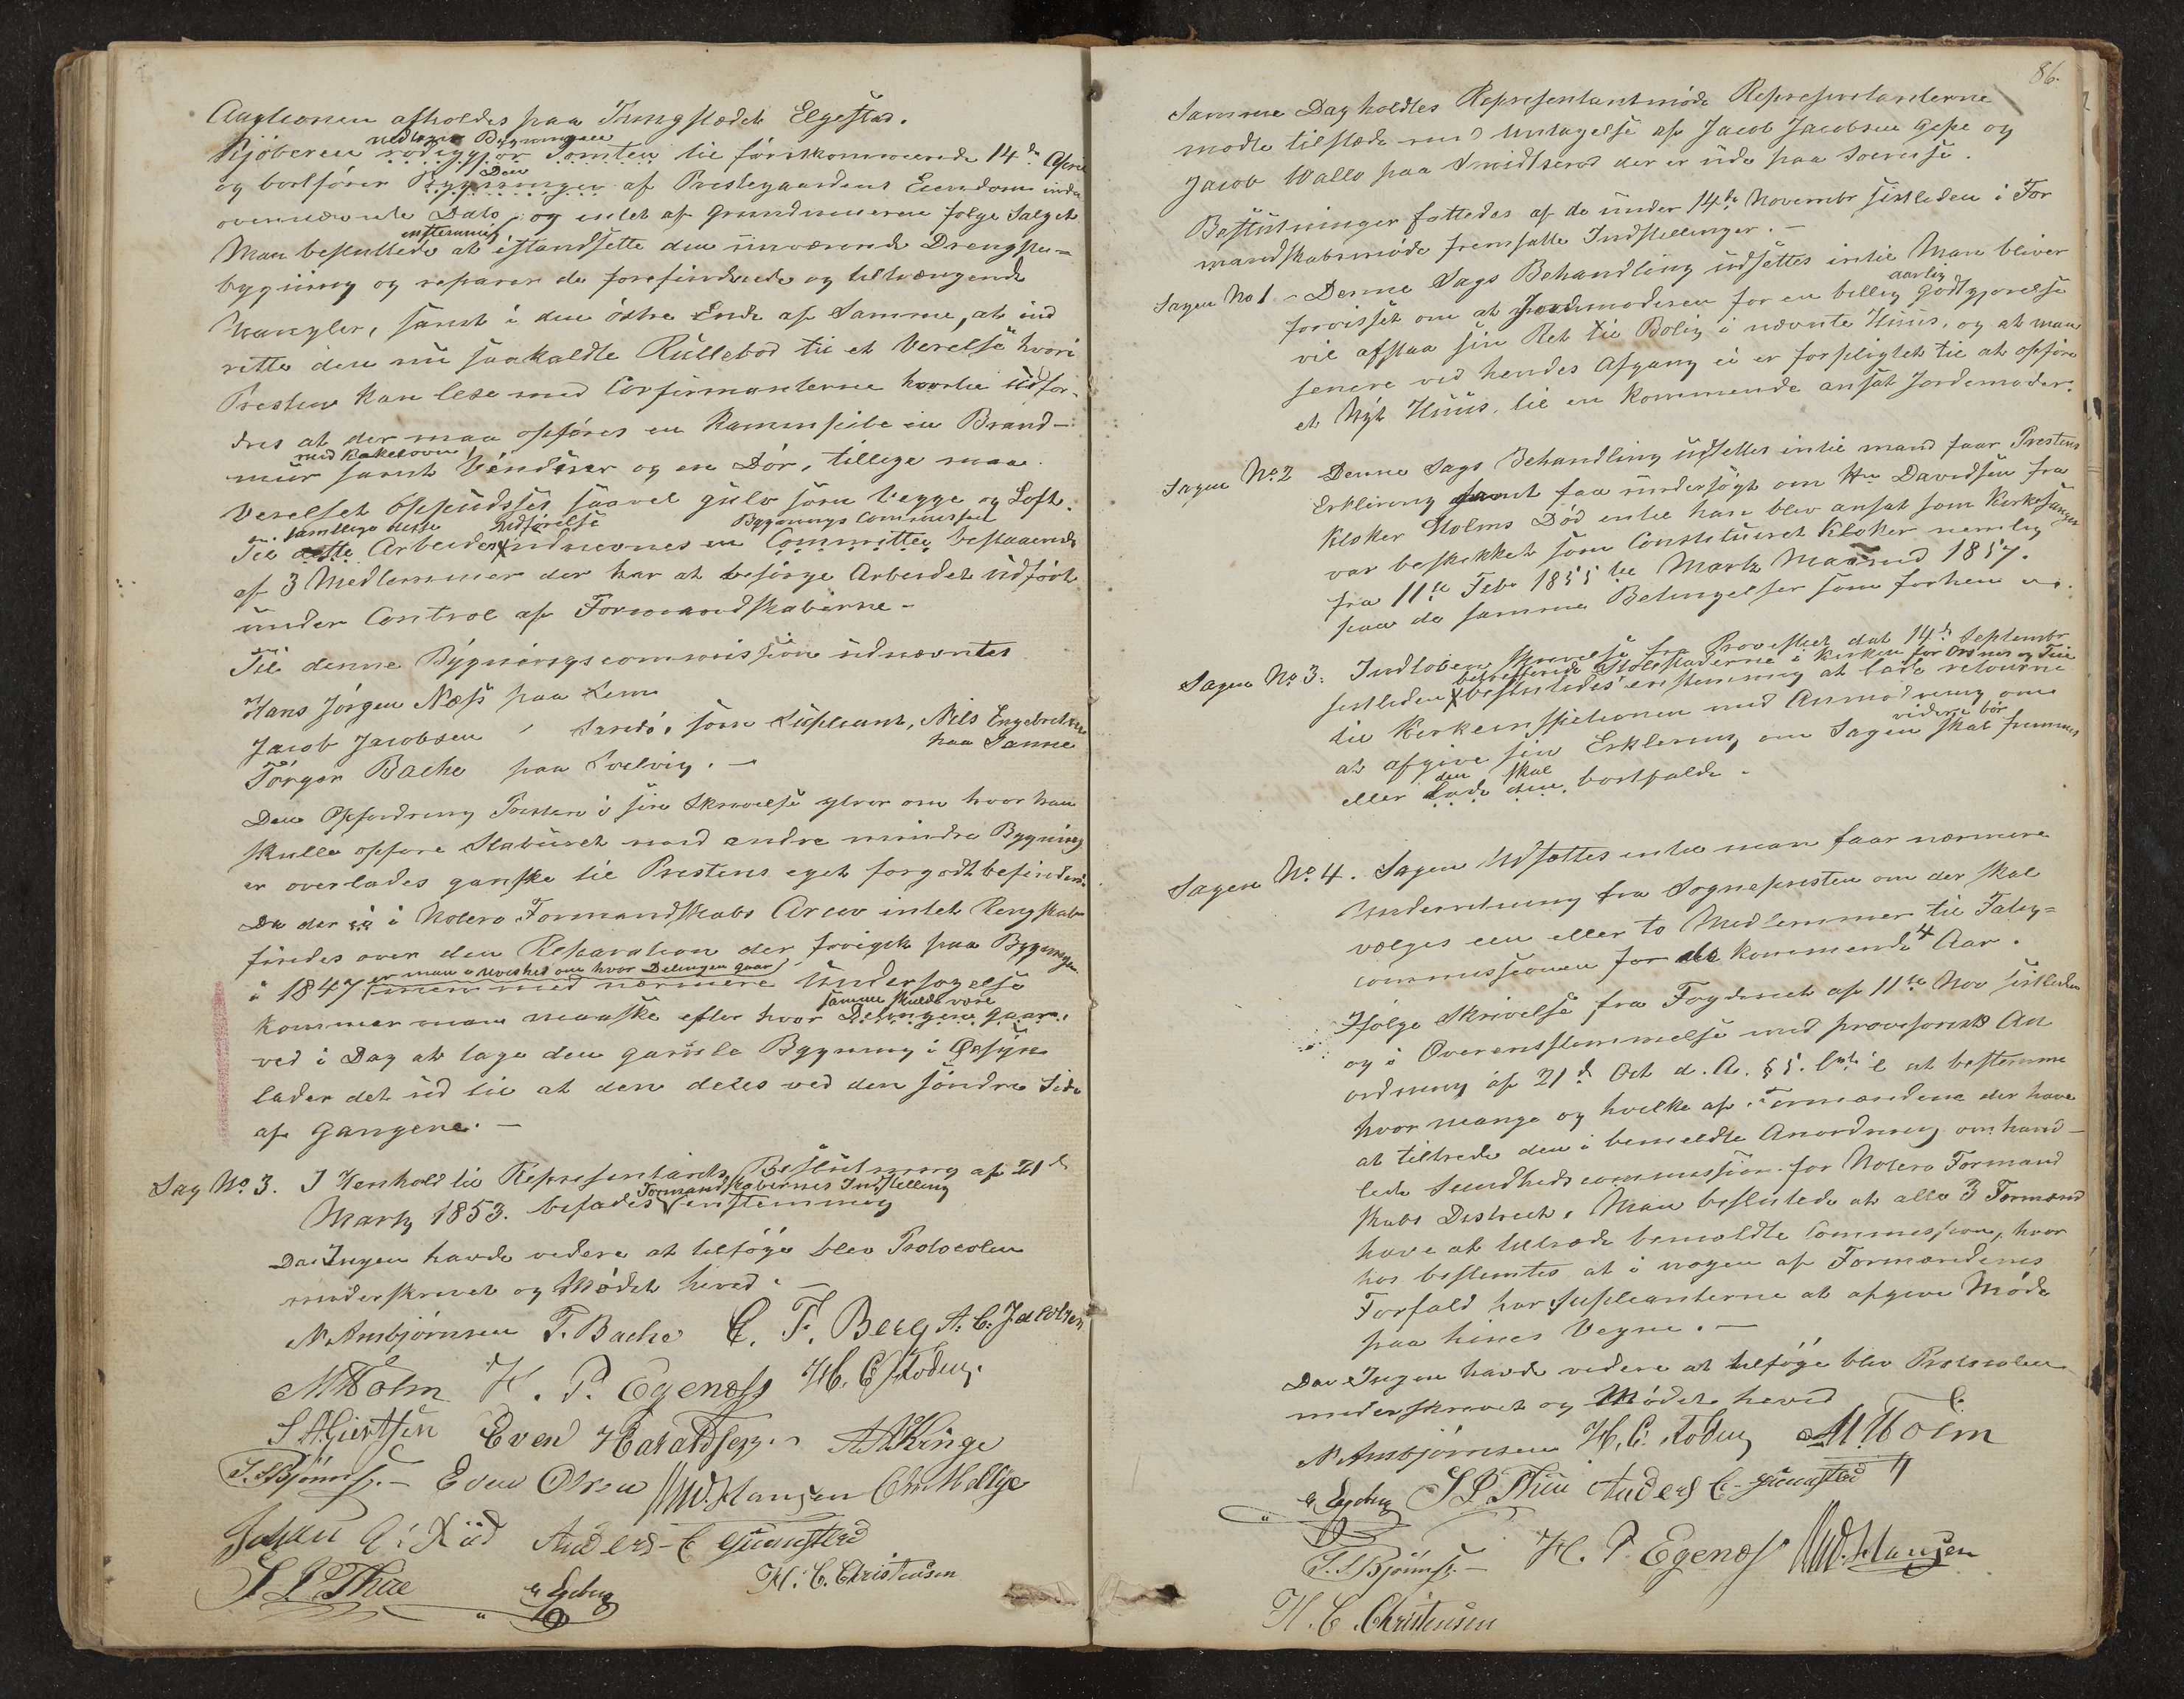 Auctionen afholdes paa Thingstædet Elgestad.
nedtager Bygningen
Kjöberen rödiggjor Tomten til förstkommende 14de April
Den
og bortförer Bygningen af Prestegaardens Eiendom inden
ovennævnte Dato, og intet af Grundmuren folge Salget
enstemmig
Man besluttede at istandsette den nuværende Drengstu-
bygning og reparer de forefindende og tiltrængende
Mangler, samt i den östre Ende af Samme, at ind
rette den nu saakaldte Rullebod til et Verelse hvori
Presten kan lese med Confirmanterne hvortil udfor-
dres at der maa opföres en Kammpibe en Brand-
med Bakerovn
mur samt Vinduer og en Dör, tillige maa
Verelset oppudses saavel gulv som Vegge og Loft.
samtlige disse Udförelse Bygnings Commission
Til dette Arbeides udnævnes en Committee bestaaende
af 3 Medlemmer der har at besörge Arbeidet udfört
under Control af Formandskaberne -
Til denne Bygningscommission udnævntes
Hans Jörgen Næss paa Lem
Jacob Jacobsen " Sandö, som Supleant, Nils Engebretsen
paa Sanne
Törger Bache paa Solvig. -
Den Opfordring Presten i sin Skrivelse ytrer om hvor han
skulle opfore Staburet med andre mindre Bygning
er overlades ganske til Prestens eget forgodtbefindene.
Da der ei i Notero Formandskabs Arciv intet Rengskab
findes over den Reparation der foregik paa Bygningen
er man i uvished om hvor Delingen gaar
i 1847 men med nærmere Undersogelse
samme skulde være
kommer man maaske efter hvor Delingen gaar,
ved i Dag at tage den gamle Bygning i Öiesyn
lader det ud til at den deles ved den söndre Side
af Gangene. -
Sag No 3. I Henhold til Representants Beslutning af 21de
Formandskabernes Indstilling
Marts 1853. besades enstemmig
Da Ingen havde videre at tilföge blev Protocolen
underskrevet og Mödet heved. -
N Ambjörnsen T. Bache C. F. Berg A. C. Jacobsen
M Holm H. P. Egenæss H. C. Foden.
S A Giertsen Even Haraldsen. A A Ringe
T. A Bjönnes. - Even Olsen M W. Hansen Chr Mellye
Johan G: Röd Anders C Gunnestad
S L Thue H. C. Christensen
86.
Samme Dag holdtes Representantmöde Representanterne
mödte tilstæde med Undtagelse af Jacob Jacobsen Gipe og
Jacob Wallo paa Smidtsröd der er ude paa Soereise.
Beslutninger fattedes af de under 14de Novembr sistleden i For
mandskabsmöde fremsatte Indstillinger. -
Sagen No 1 - Denne Sags Behandling udsættes intil Man bliver
aarlig
forvisset om at Jordemoderen for en billig Godtgjorelse
vil afstaa sin Ret til Bolig i nævnte Huus, og at man
senere ved hendes Afgang ei er forpligtet til at opföre
et Nyt Huus, til en kommende ansat Jordemoder.
Sagen No 2 Denne Sags Behandling udsettes intil mand faar Prestens
Erklering samt faa undersögt om Hr Davidsen fra
Kloker Holms Död intil han blev ansat som Kirkesanger
var beskikket som Constitueret Kloker nemlig
fra 11te Febr 1855 til Marts Maaned 1857.
paa de samme Betingelser som forhen
Sagen No 3. Indloben Skrivelse fra Provestiet dat 14de Septembr
betreffende Stolestaderne i Kirken for Orsnes og Tue
sistleden besluttedes enstemmig at lade returne
til Kirkeinspectionen med Anmodning om
videre bör
at afgive sin Erklering om Sagen skal fremmes
den skal
eller lade den bortfalde.
Sagen No. 4. Sagen Udsættes intil man faar nærmere
Underretning fra Sognepresten om der skal
vælges een eller to Medlemmer til Fattig-
commissionen for de kommende 4 Aar.
Ifölge Skrivelse fra Fogderiet af 11te Nov sistleden
og i Overensstemmelse med provisorisk An
ordning af 21de Oct d. A. § 5. Litr: e at bestemme
hvor mange og hvilke af Formændene der have
at tiltræde den i bemeldte Anordning omhand-
lede Sundhedscommission for Notero Formand
skabs Distrect. Man besluttede at alle 3 Formænd
have at tiltræde bemældte Commission, hvor
hos bestemtes at i nogen af Formændenes
Forfald har Supleanterne at afgive Möde
paa hines Vegne. -
Da Ingen havde videre at tilföge blev Protocolen
underskrevet og Mödet heved
N Ambjörnsen H. C. Foden M. Holm
S L Thue Anders C. Gunnestad
T. A Bjönnes. - H. P. Egenæs M W. Hansen
H. C. Christensen